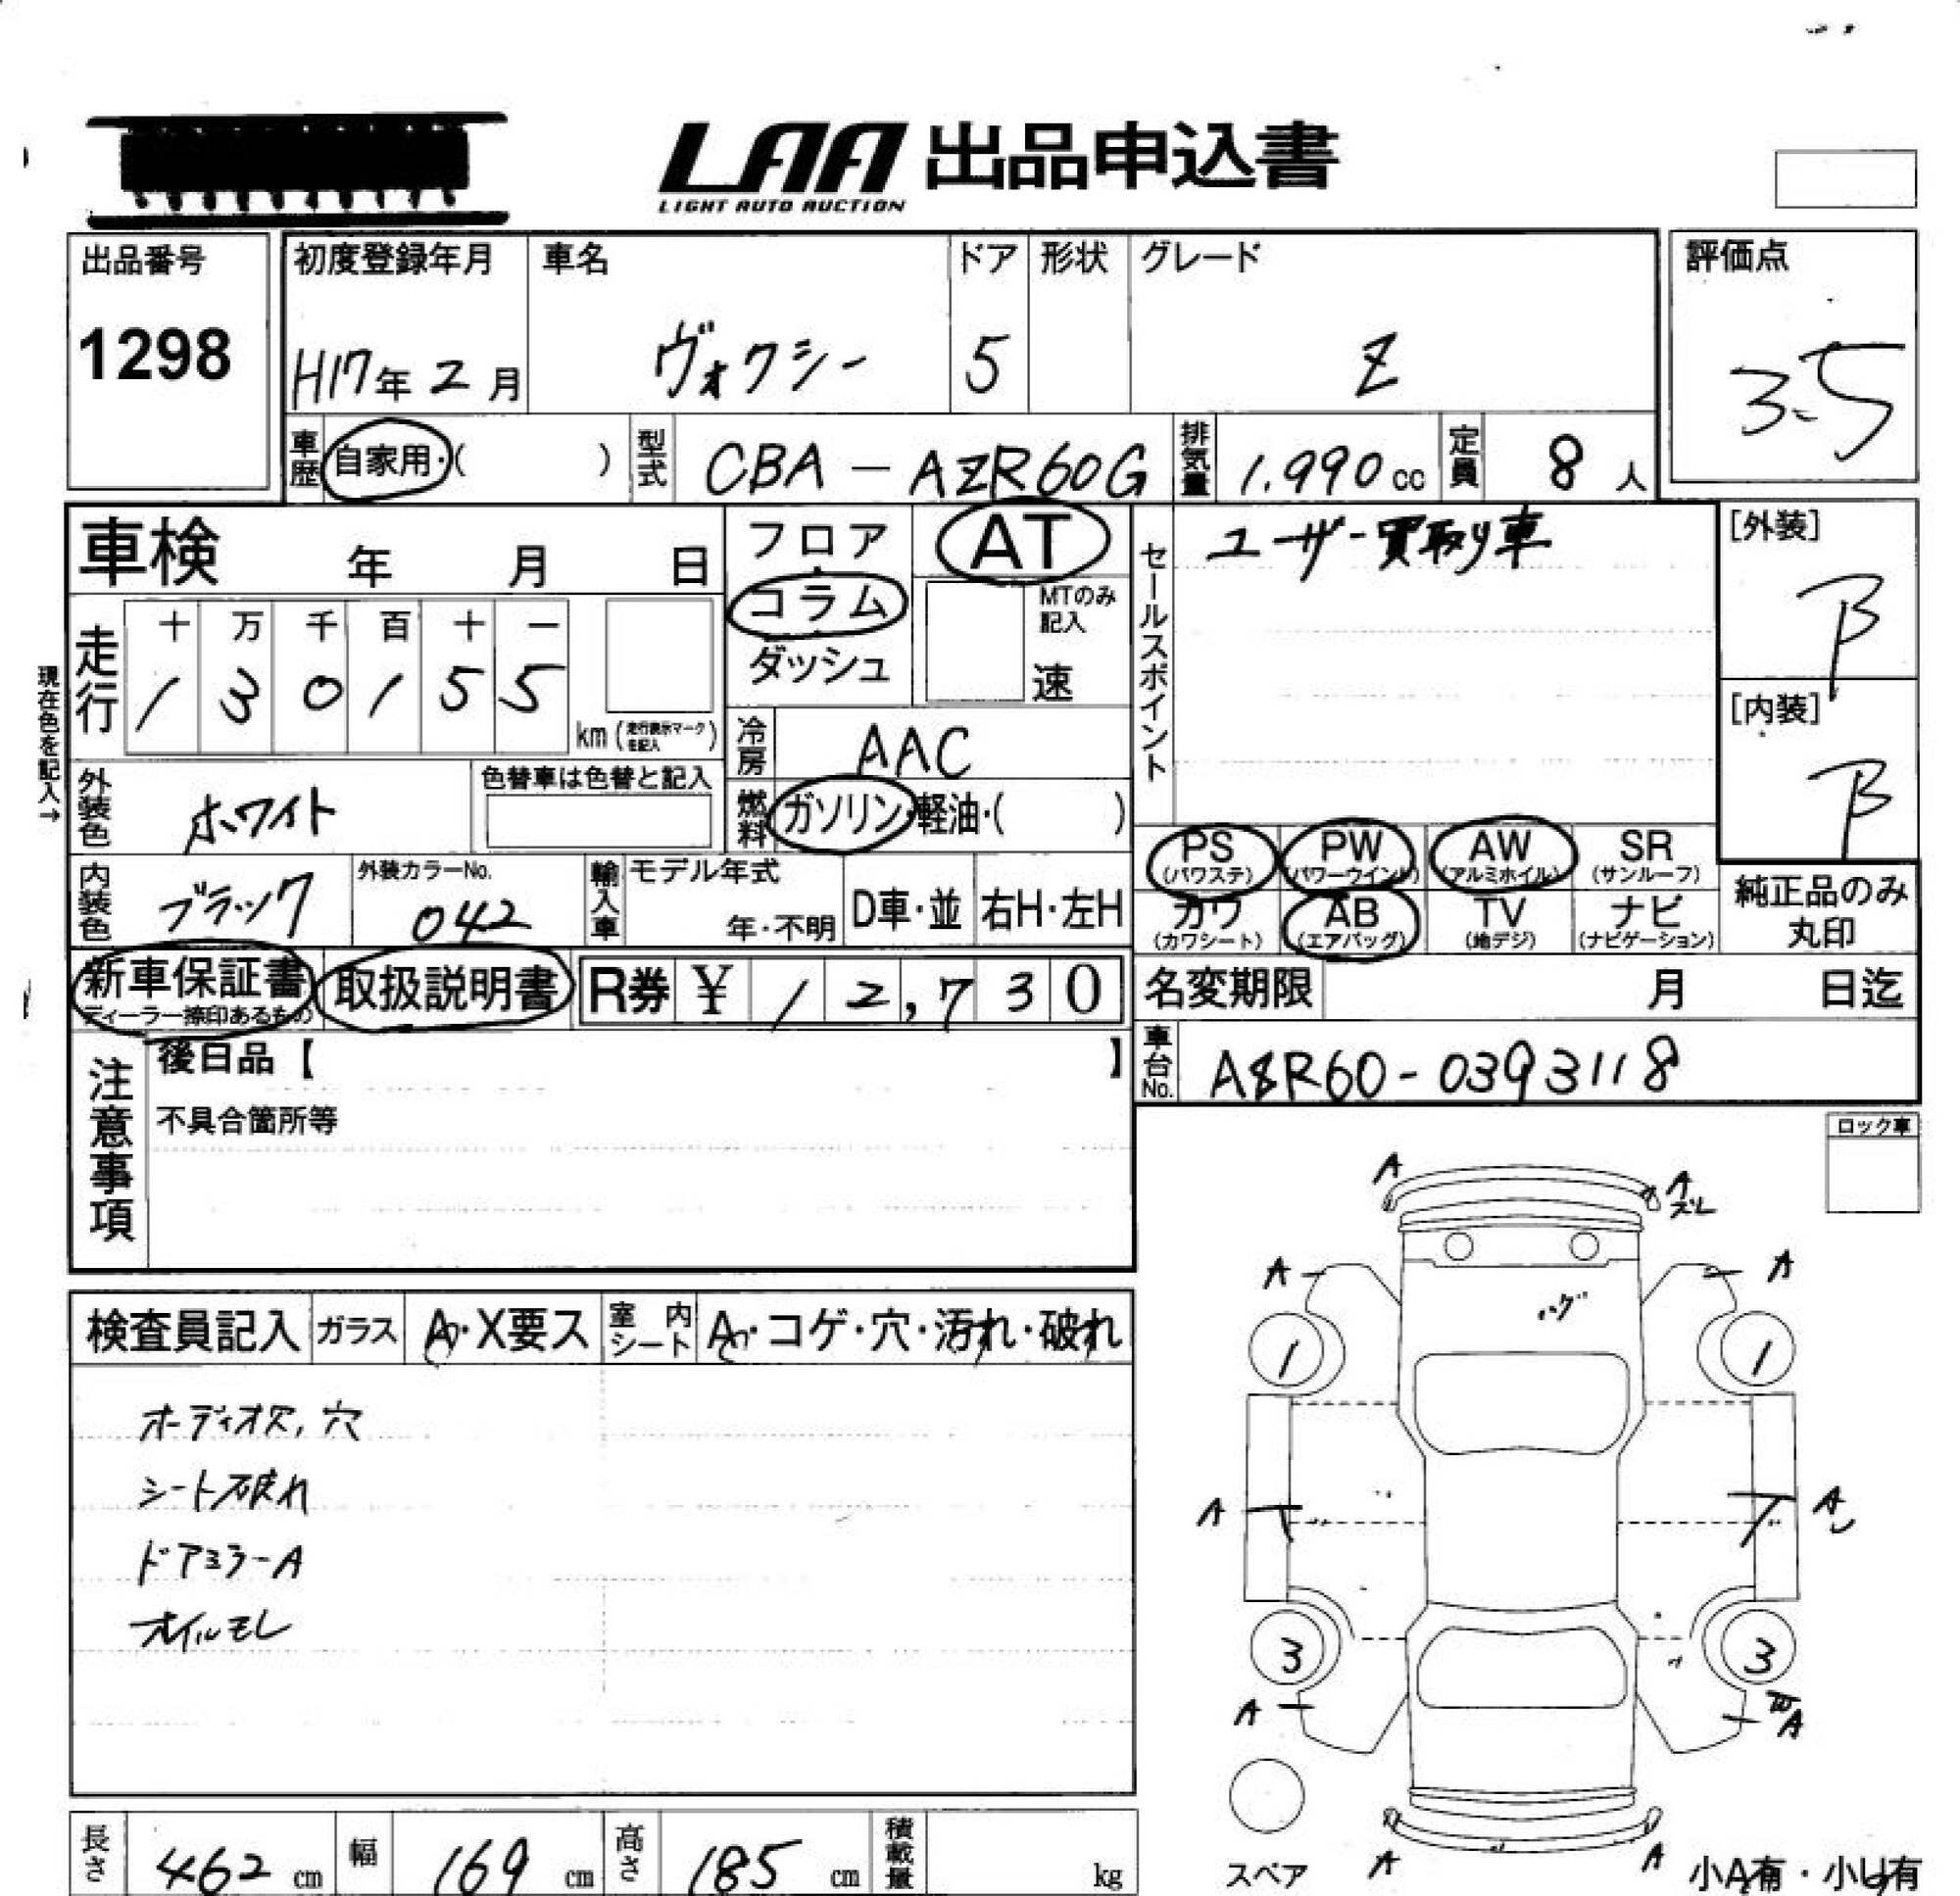 LAA 出品申込書
LIGHT AUTO AUCTION
出品番号 初度登録年月 車名 ドア 形状 グレード 評価点
1298 H17年 2月 ヴォクシー 5 Z 3.5
車歴 自家用・( ) 型式 CBA-AZR60G 排気量 1,990cc 定員 8人
車検 年 月 日 フロア AT セールスポイント ユーザー買取り車 [外装]
B
コラム MTのみ記入
ダッシュ 速
現在色を記入→
走行 十 万 千 百 十 一
1 3 0 1 5 5 km (走行表示マークを記入)
[内装]
B
冷房 AAC
外装色 ホワイト 色替車は色替と記入 燃料 ガソリン・軽油・( )
PS PW AW SR
(パワステ) (パワーウインド) (アルミホイル) (サンルーフ)
内装色 ブラック 外装カラーNo. 042 輸入車 モデル年式 年・不明 D車・並 右H・左H
カワ AB TV ナビ
(カワシート) (エアバッグ) (地デジ) (ナビゲーション)
純正品のみ
丸印
新車保証書 取扱説明書 R券 ¥ 12,730 名変期限 月 日迄
ディーラー捺印あるもの
注意事項 後日品【 】 車台No. AZR60-0393118
不具合箇所等
ロック車
A A
ズレ
A A
ハゲ
1 1
検査員記入 ガラス A・X要ス 室内シート A・コゲ・穴・汚れ・破れ
オーディオ欠,穴
シート破れ
ドアミラーA
オイルモレ
A A
3 3
A A
スペア A A 小A有・小U有
長さ 462 cm 幅 169 cm 高さ 185 cm 積載量 kg